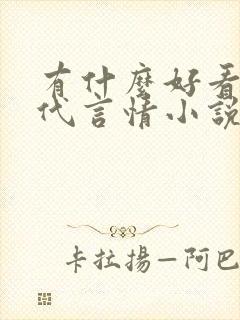 有什麼好看
代言情小說
卡拉揚—阿巴